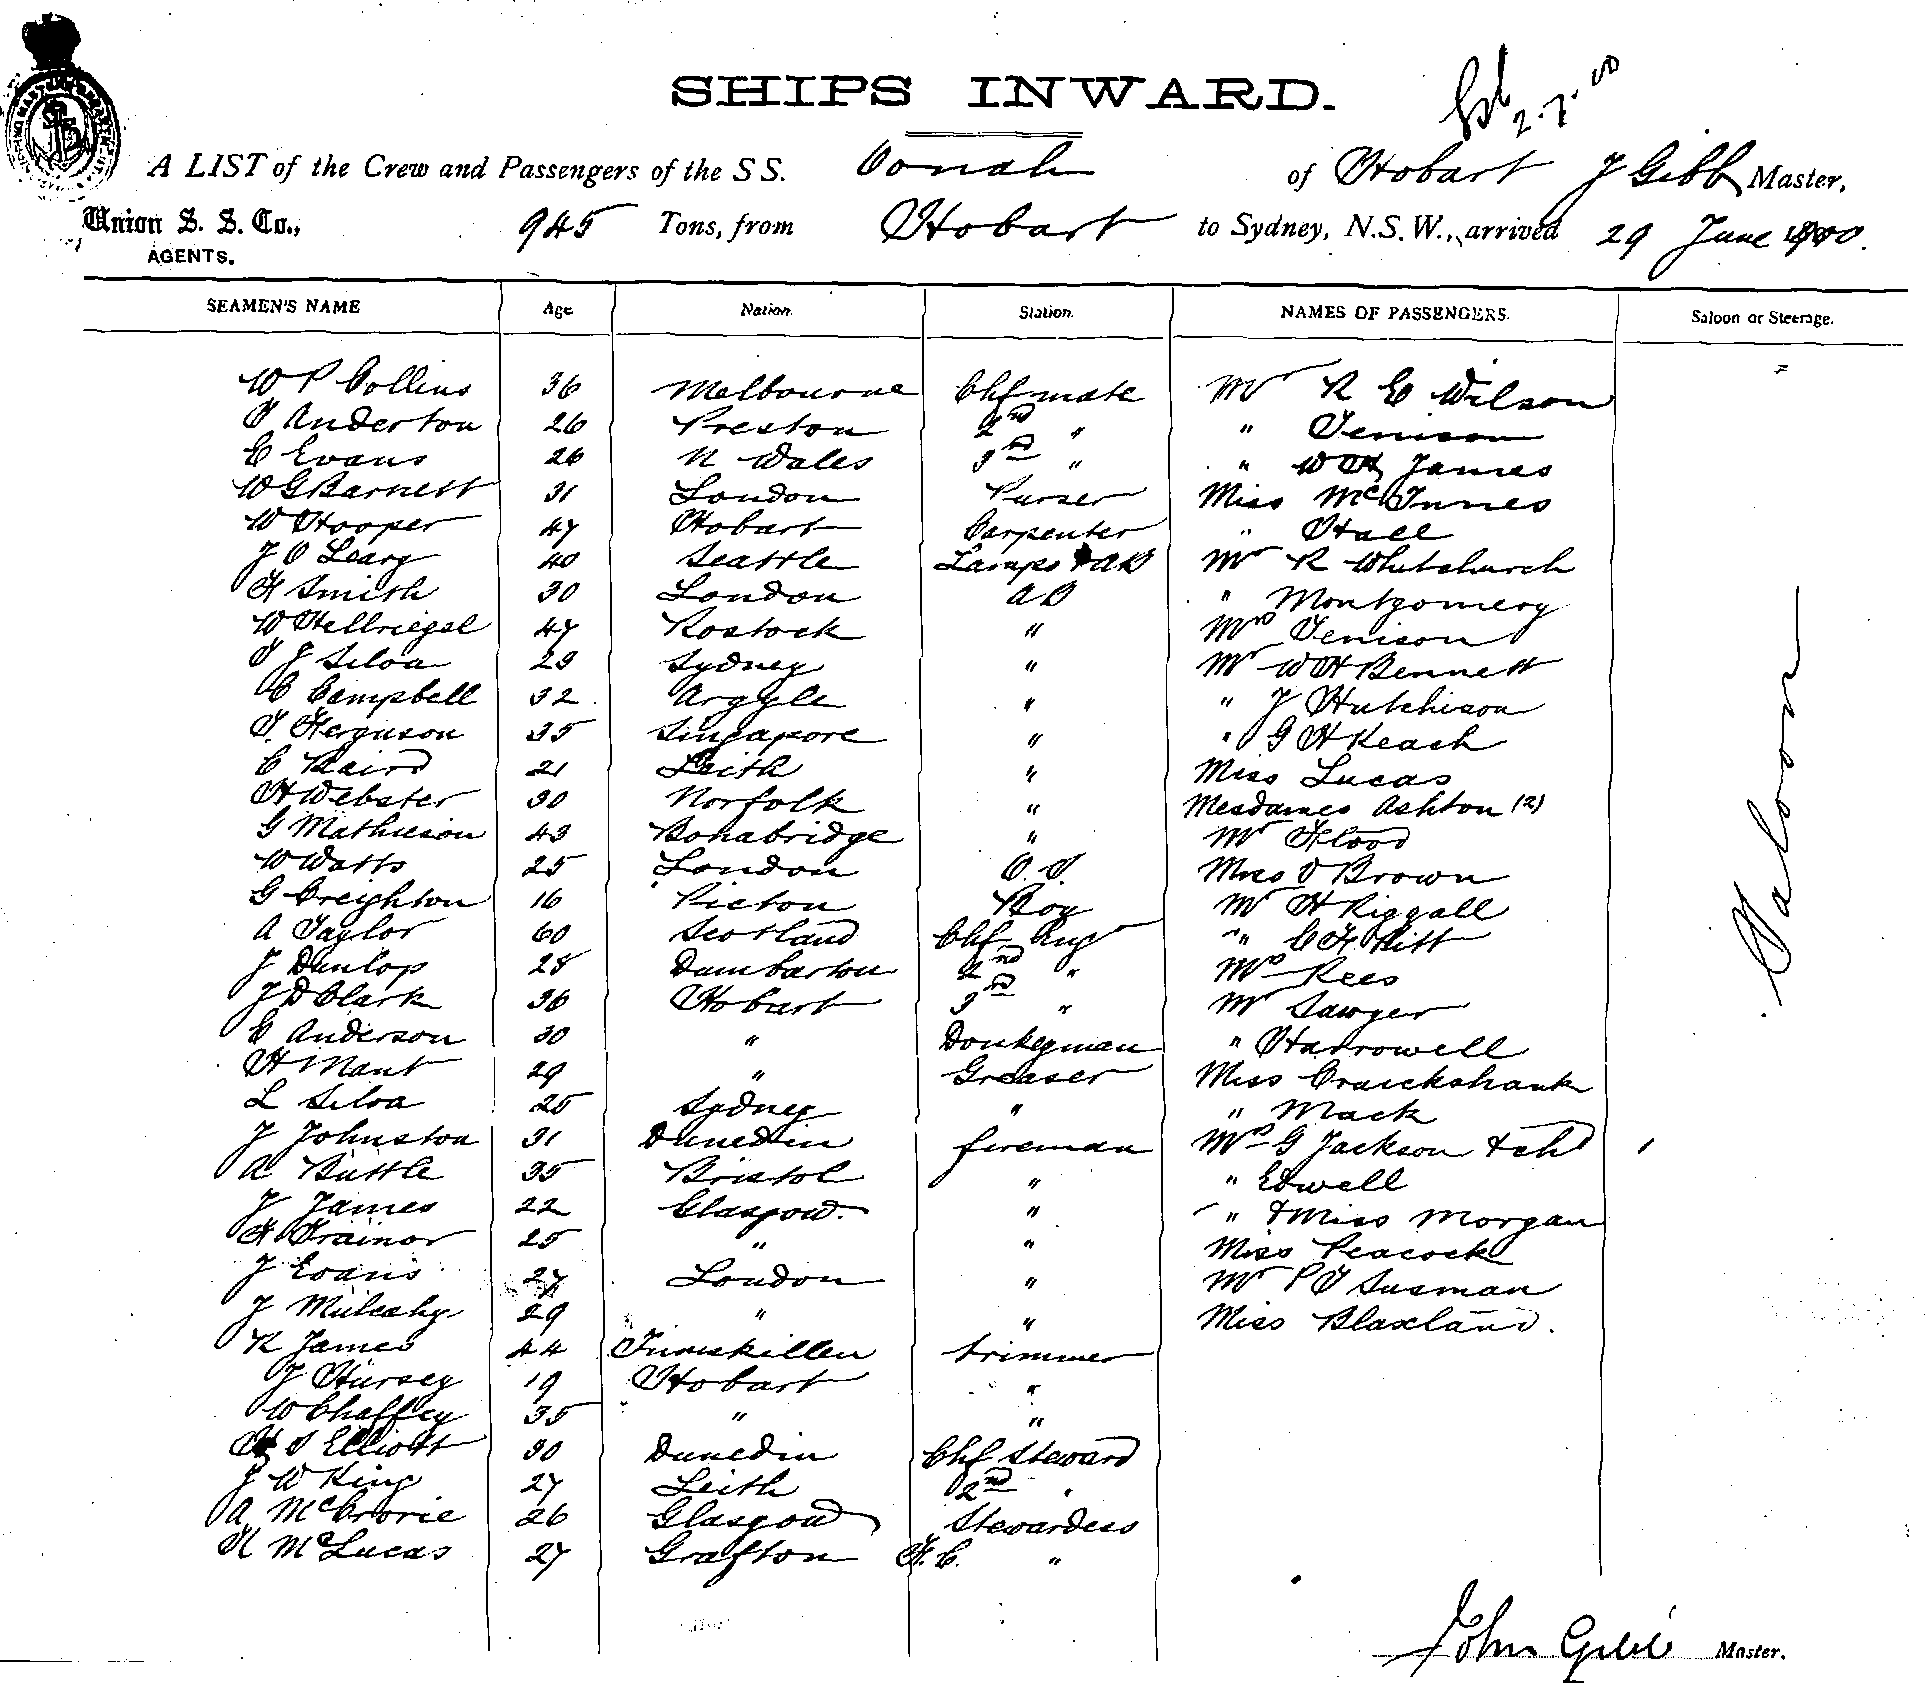 SHIPS INWARD.
2.7.00
A LIST of the Crew and Passengers of the SS. Oonah of Hobart J Gibb Master,
Union S. S. Co., 945 Tons, from Hobart to Sydney, N.S.W., arrived 29 June 1900.
AGENTS.
SEAMEN'S NAME Age Nation. Station. NAMES OF PASSENGERS. Saloon or Steerage.
W P Collins 36 Melbourne Chf mate Mr R E Wilson
T Anderton 26 Preston 2nd " " Tenison
E Evans 26 N Wales 3rd " " W H James
W G Barnett 31 London Purser Miss McInnes
W Hooper 47 Hobart Carpenter " Hall
J O Leary 40 Seattle Lamps & AB Mr R Whitchurch
F Smith 30 London AB " Montgomery
W Hellriegel 47 Rostock " Mrs Tenison
T J Silva 29 Sydney " Mr W H Bennett
C Campbell 32 Argyle " " J Hutchison
T. Ferguson 35 Singapore " " G H Keach
C Baird 21 Leith " Miss Lucas
H Webster 30 Norfolk " Mesdames Ashton (2)
G Mathieson 43 Bonabridge " Mr Flood
W Watts 25 London O.S. Miss O Brown
G Creighton 16 Picton Boy Mr H Riggall
A Taylor 60 Scotland Chf Engr " C F Pitt
J Dunlop 28 Dumbarton 2nd " Mrs Rees
J D Clark 36 Hobart 3rd " Mr Sawyer
C Anderson 30 " Donkeyman " Harrowell
H Mant 29 " Greaser Miss Cruickshank
L Silva 25 Sydney " " Mack
J Johnston 31 Dunedin fireman Mrs G Jackson & chd
A Buttle 35 Bristol " " Edwell
J James 22 Glasgow. " " & Miss Morgan
F Trainor 25 " " Miss Peacock
J Evans 27 London " Mr P S Susman
J Mulcahy 29 " " Miss Blaxland.
R James 44 Inniskillen trimmer
J Hursey 19 Hobart "
W Chaffey 35 " "
H S Elliott 30 Dunedin Chf Steward
J W King 27 Leith 2nd "
A McCrorie 26 Glasgow Stewardess
K McLucas 27 Grafton F.C. "
Saloon
John Gibb Master.